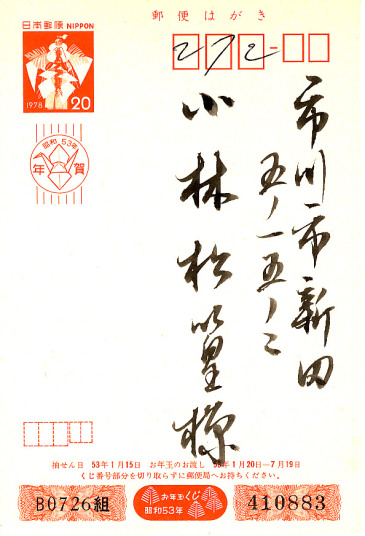 郵便はがき
日本郵便 NIPPON
1978 20
272
昭和53年
年賀
市川市新田
五ノ一五ノ二
小林松篁様
抽せん日 53年1月15日 お年玉のお渡し 53年1月20日―7月19日
くじ番号部分を切り取らずに郵便局へお持ちください。
B0726組
お年玉くじ
昭和53年
410883